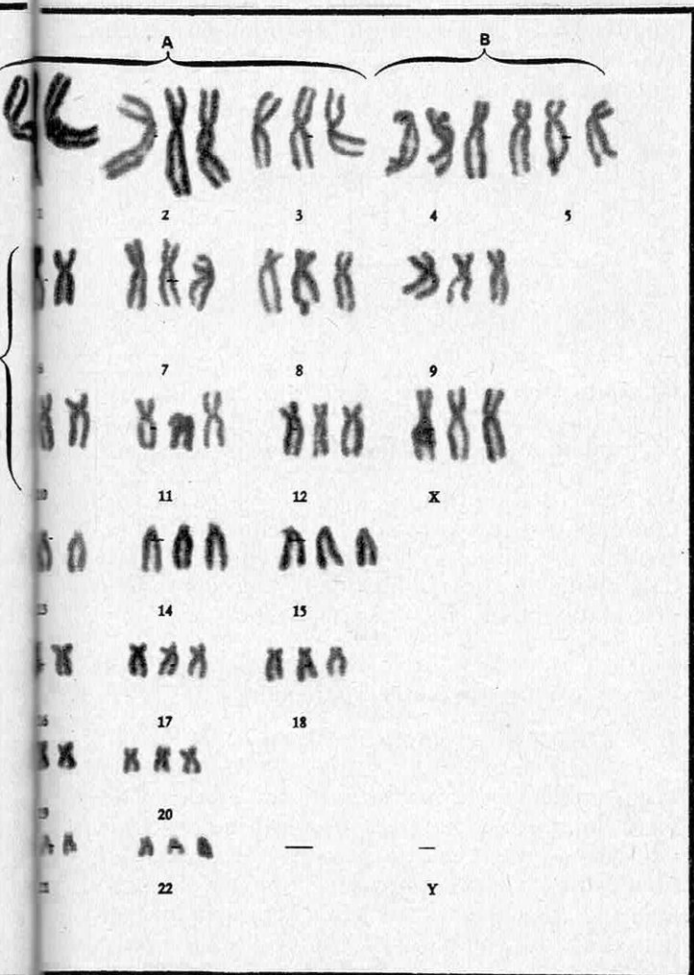 A B
2 3 4 5
7 8 9
10 11 12 X
14 15
16 17 18
19 20
22 Y